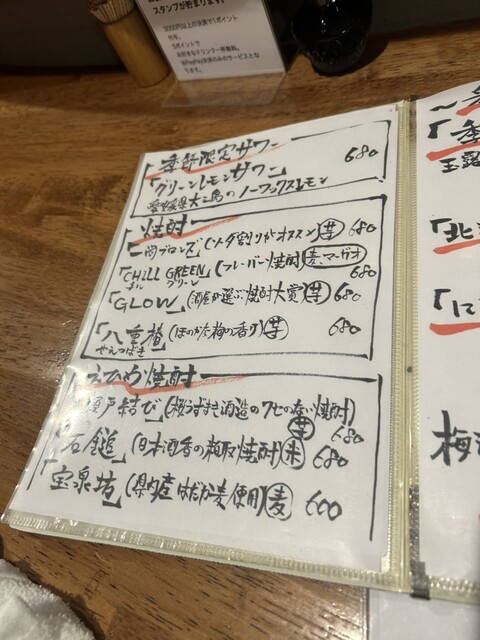 スタンプが貯まります。
3000円以上の決済で1ポイント
付与。
5ポイントで
お好きなドリンク一杯無料。
※PayPay決済のみのサービスとな
ります。
季節限定サワー
「グリーンレモンサワー」 680
愛媛県大三島のノーワックスレモン
焼酎
(ソダ割りがオススメ) 芋 680
「CHILL GREEN」(フレーバー焼酎) 麦・マーガオ
チル グリーン 680
「GLOW」(酒屋が選ぶ焼酎大賞) 芋 680
「八重椿」(ほのかな梅の香り) 芋 680
やえつばき
えひめ焼酎
瀬戸結び」(桜うづまき酒造のクセのない焼酎)
芋 680
「石鎚」(日本酒香の粕取焼酎) 米 680
「宝泉坊」(県内産はだか麦使用) 麦 600
玉露
「北
「に
梅酒